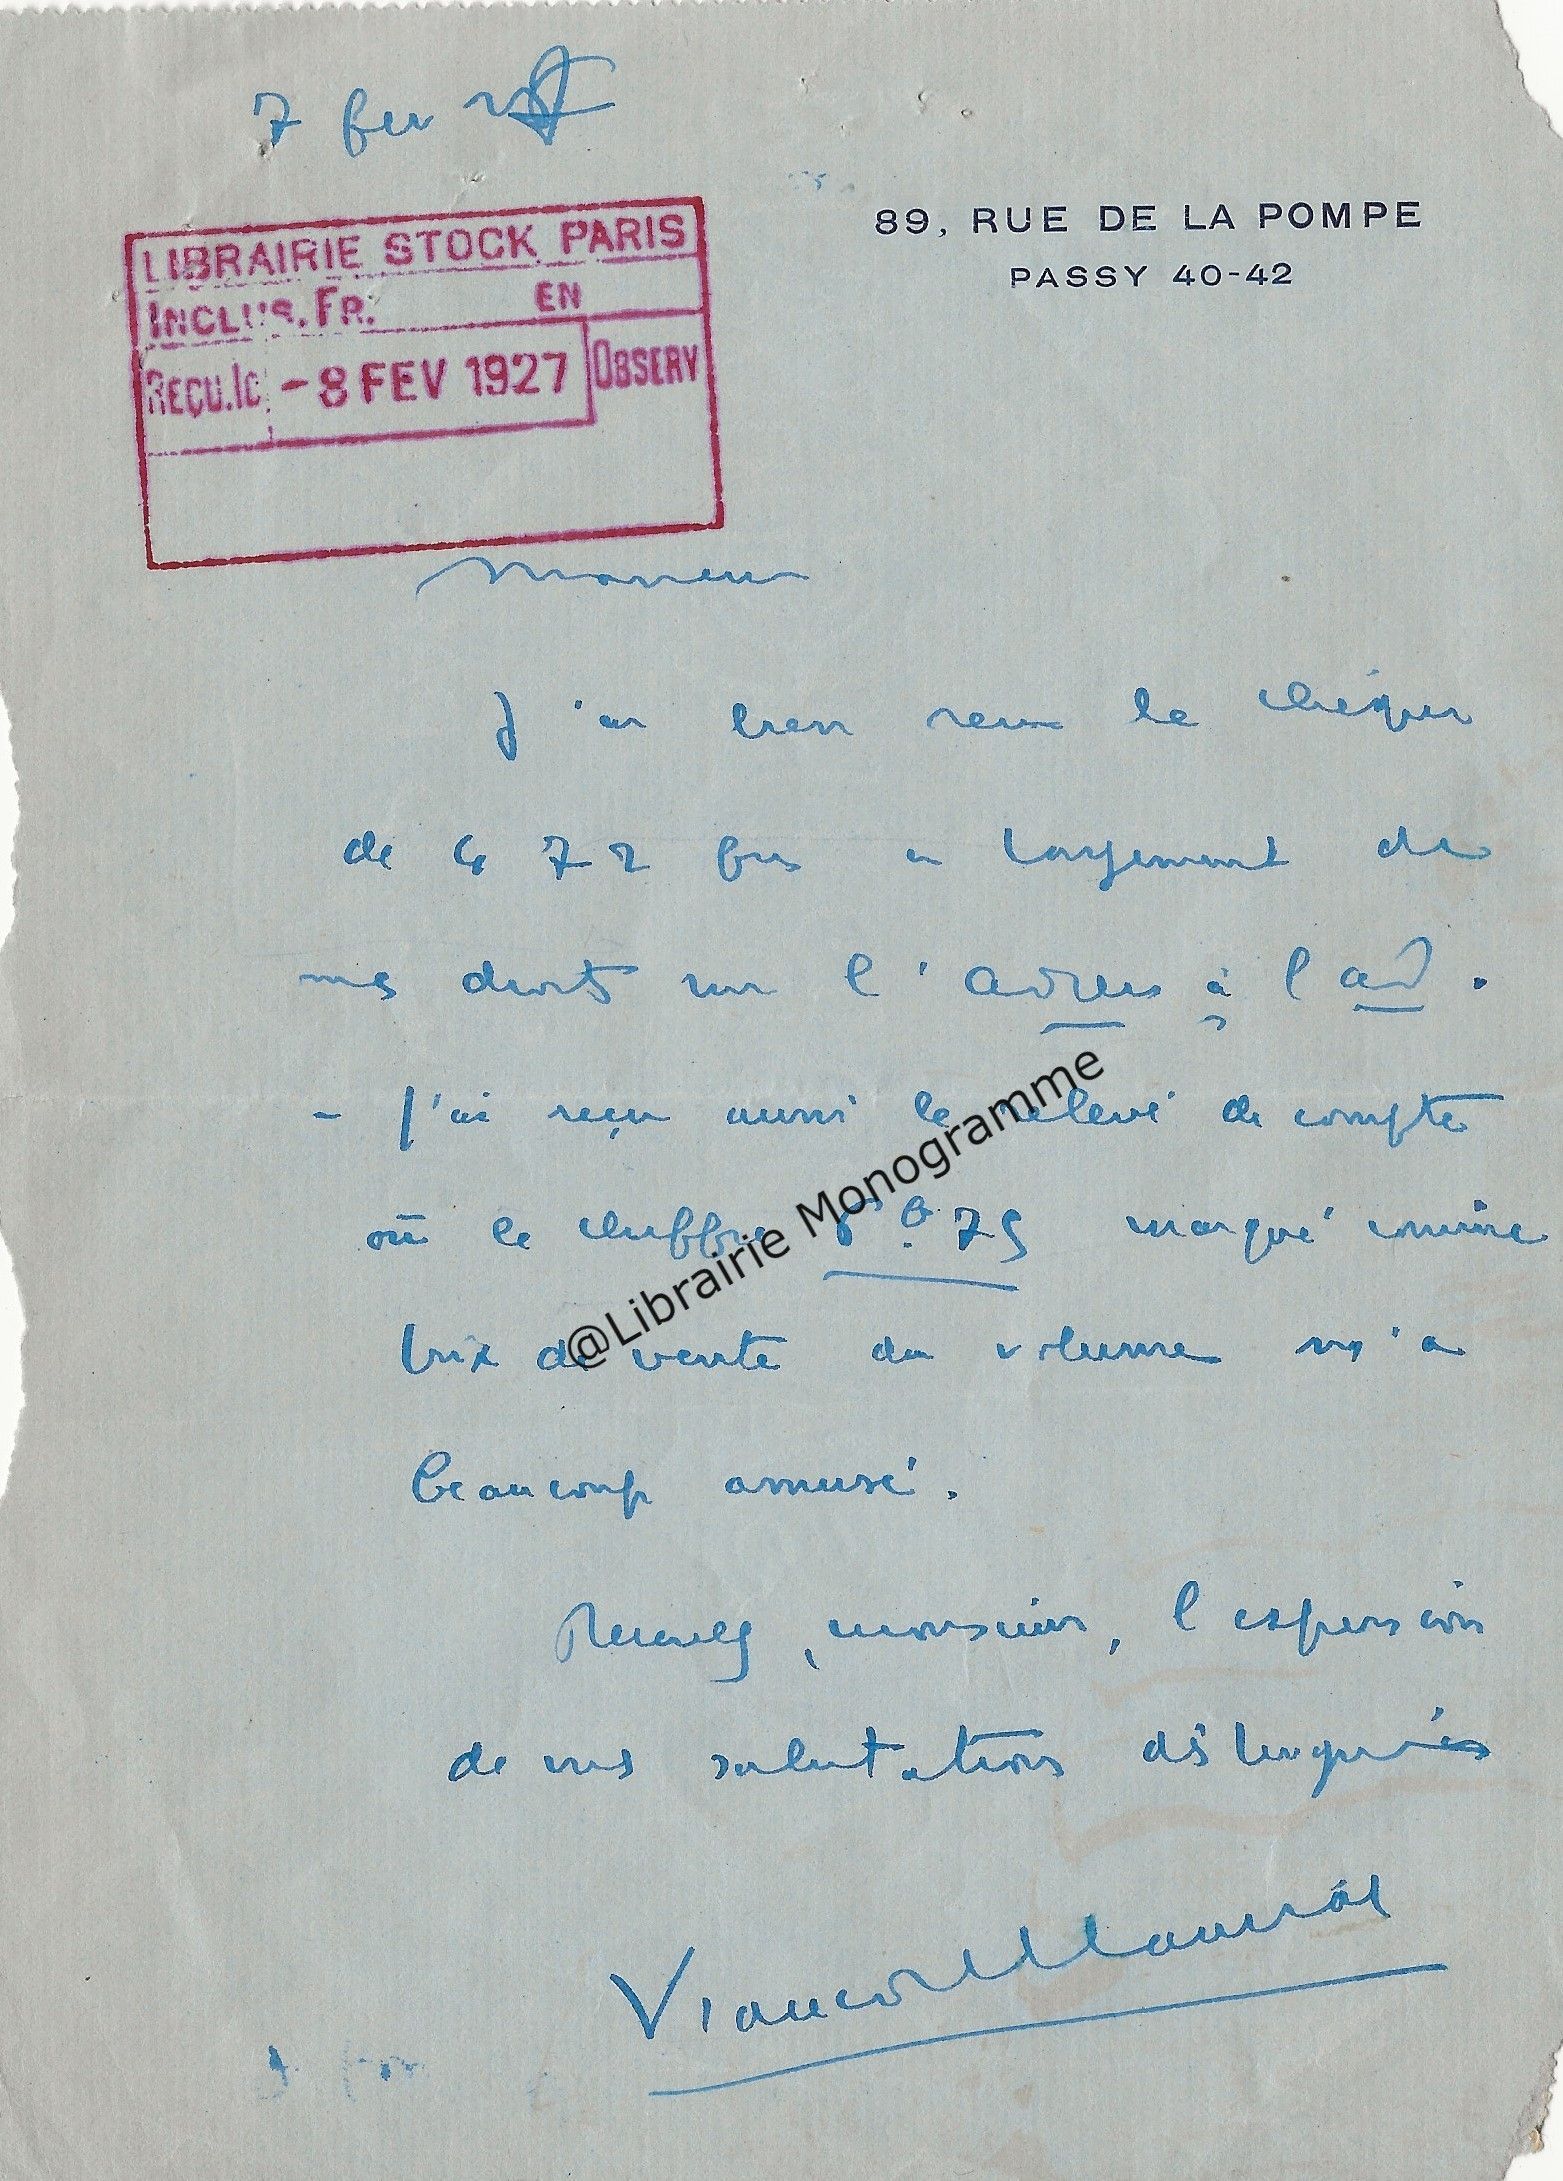 7 fev
89, RUE DE LA POMPE
PASSY 40-42
LIBRAIRIE STOCK PARIS
INCLUS. FR. EN
REÇU.LE - 8 FEV 1927 OBSERV
Monsieur
J'ai bien reçu le chèque
de 472 frs en payement de
mes droits sur l'Adieu à l'
- J'ai reçu aussi le relevé de compte
où le chiffre 75 marqué comme
prix de vente du volume m'a
beaucoup amusé.
Recevez, monsieur, l'expression
de mes salutations distinguées
@Librairie Monogramme